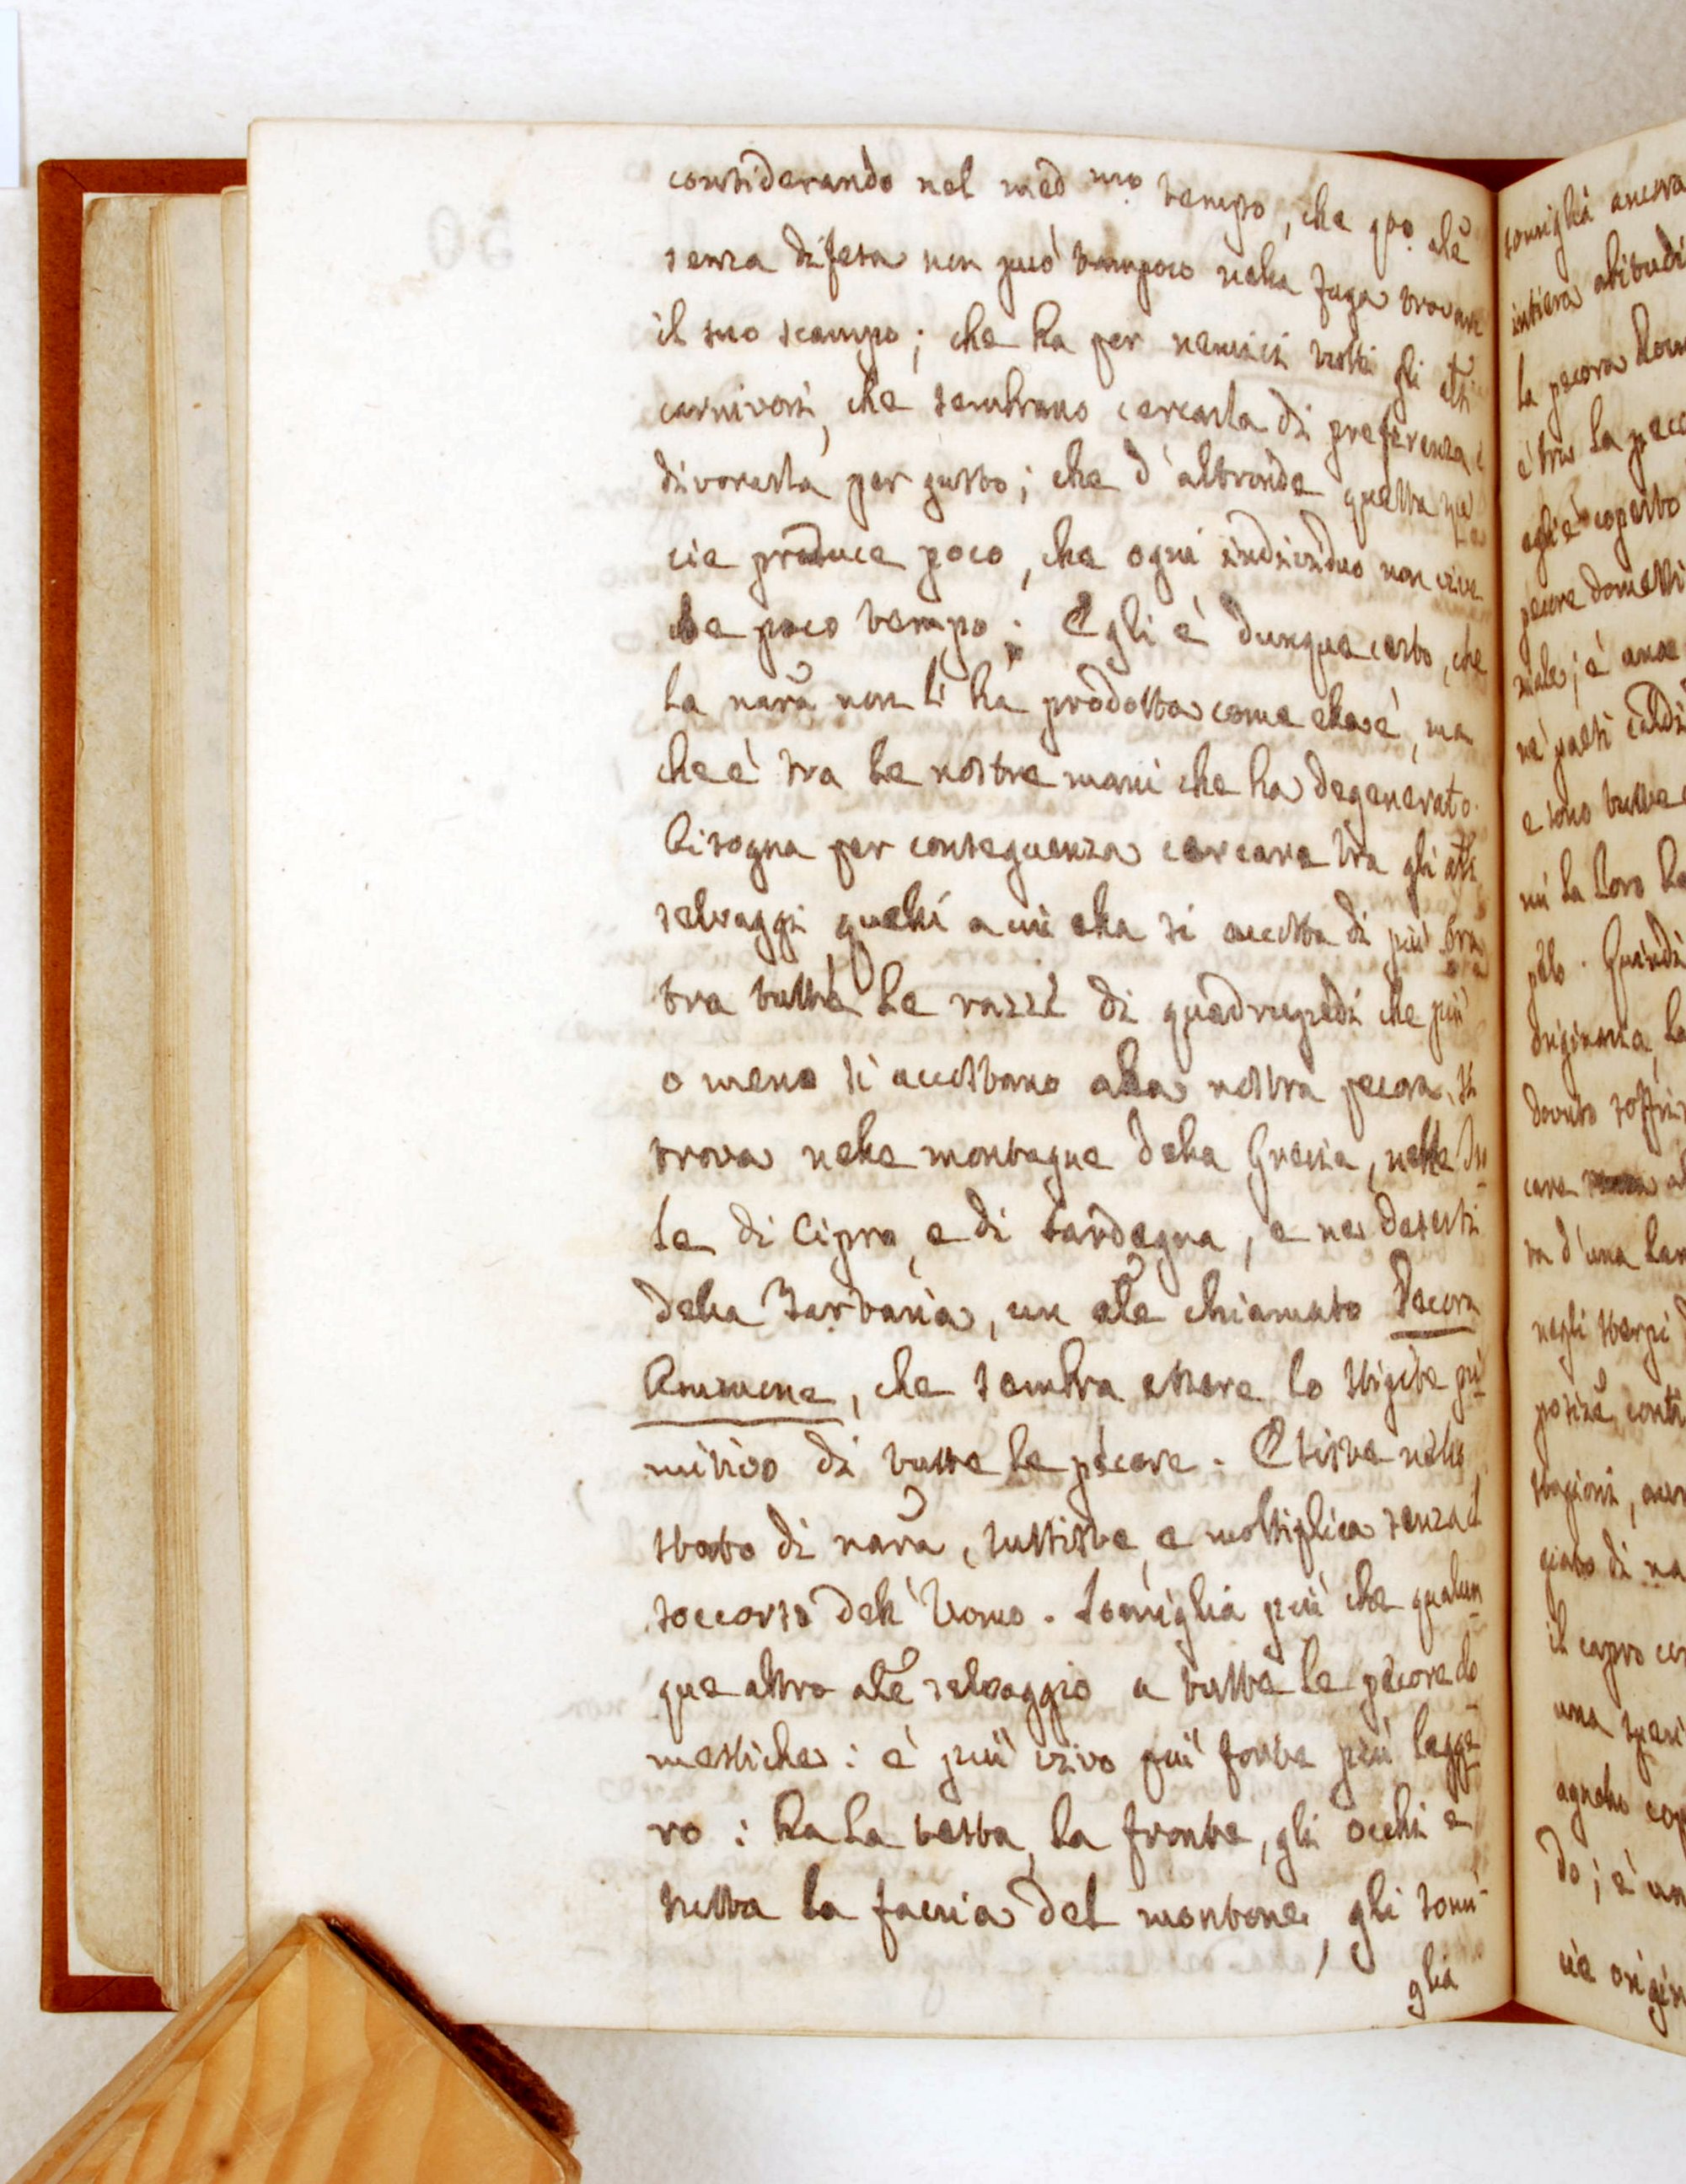 considerando nel med.mo tempo, che qto. ale
senza difesa non può tampoco nella fuga trovare
il suo scampo; che ha per nemici tutti gli ali
carnivori, che sembrano cercarla di preferenza e
divorarla per gusto; che d'altronde questa spe
cie produce poco, che ogni individuo non vive
che poco tempo; Egli è dunque certo, che
la nara non li ha prodotta come ella è, ma
che è tra le nostre mani che ha degenerato.
Bisogna per conseguenza cercare tra gli ali
selvaggi quelli a cui ella si accosta di più
tra tutte le razze di quadrupedi che più
o meno si accostano alla nostra pecora, si
trova nelle montagne della Grecia, nelle Iso
le di Cipro, e di Sardegna, e nei deserti
della Barbaria, un ale chiamato Pecora
Ammone, che sembra essere lo stipite pri
mitivo di tutte le pecore. Esiste nello
stato di nara, sussiste, e moltiplica senza il
soccorso dell'Uomo. Somiglia più che qualun
que altro ale selvaggio a tutte le pecore do
mestiche: è più vivo più forte più legge
ro: ha la testa, la fronte, gli occhi e
tutta la faccia del montone, gli somi
glia
somiglia ancora
la pecora
e tra la
egli è coperto
pecore domesti
male; è una
né paesi caldi
e sono tutte
pelo. Quindi
originaria, la
dovuto soffrir
negli sterpi
il capro
una speci
do; è un